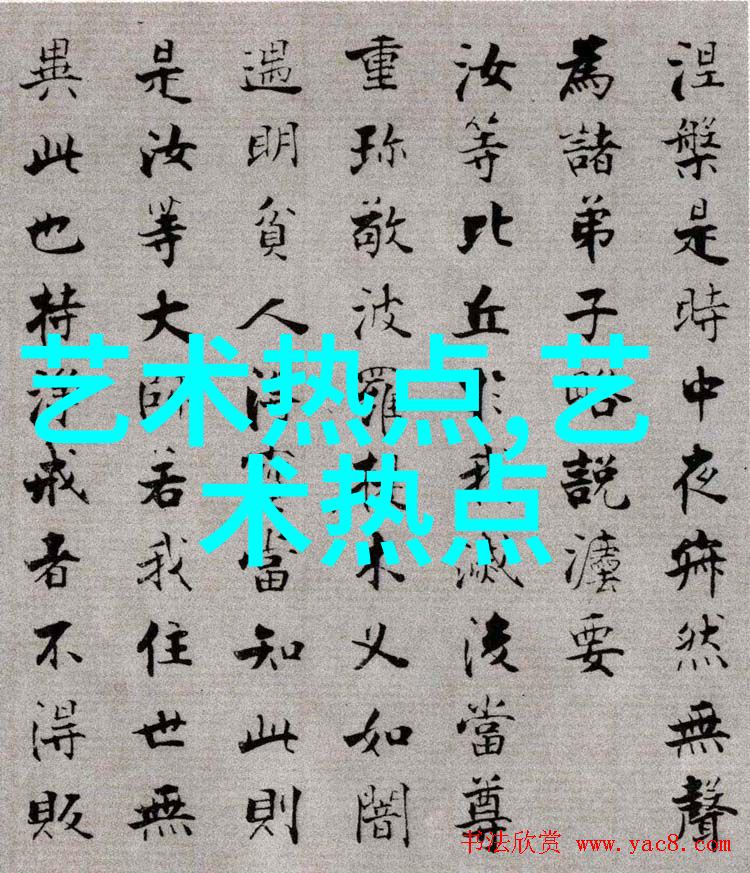 涅槃是時中夜寂然無聲
為諸弟子略説灋要
汝等比丘於我滅後當尊
重珎敬波羅提木叉如闇
遇明貧人得寶當知此則
是汝等大師若我住世無
異此也持淨戒者不得販
艺术热点,艺
术热点
书法欣赏 www.yac8.com